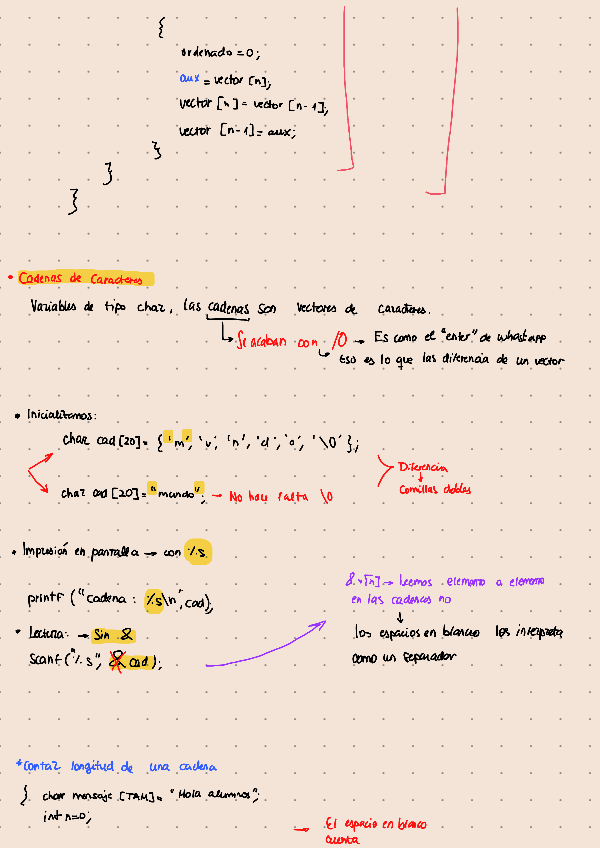 {
ordenado = 0;
aux = vector [n];
vector [n] = vector [n-1];
vector [n-1] = aux;
}
}
}
• Cadenas de Caracteres
Variables de tipo char, las cadenas son vectores de caracteres.
↳ Se acaban con /0 → Es como el "enter" de whastapp
↳ Eso es lo que las diferencia de un vector
• Inicializamos:
char cad [20] = { 'm', 'u', 'n', 'd', 'o', '\0' };
char cad [20] = "mundo"; → No hace falta \0
Diferencia
↓
Comillas dobles
• Impresión en pantalla → con %s
printf ("cadena : %s\n", cad);
• Lectura: → Sin &
Scanf ("%s", & cad);
& v[n] → Leemos elemento a elemento
en las cadenas no
↓
los espacios en blanco los interpreta
como un separador
*Contar longitud de una cadena
} char mensaje [TAM] = "Hola alumnos";
int n=0;
→ El espacio en blanco
cuenta